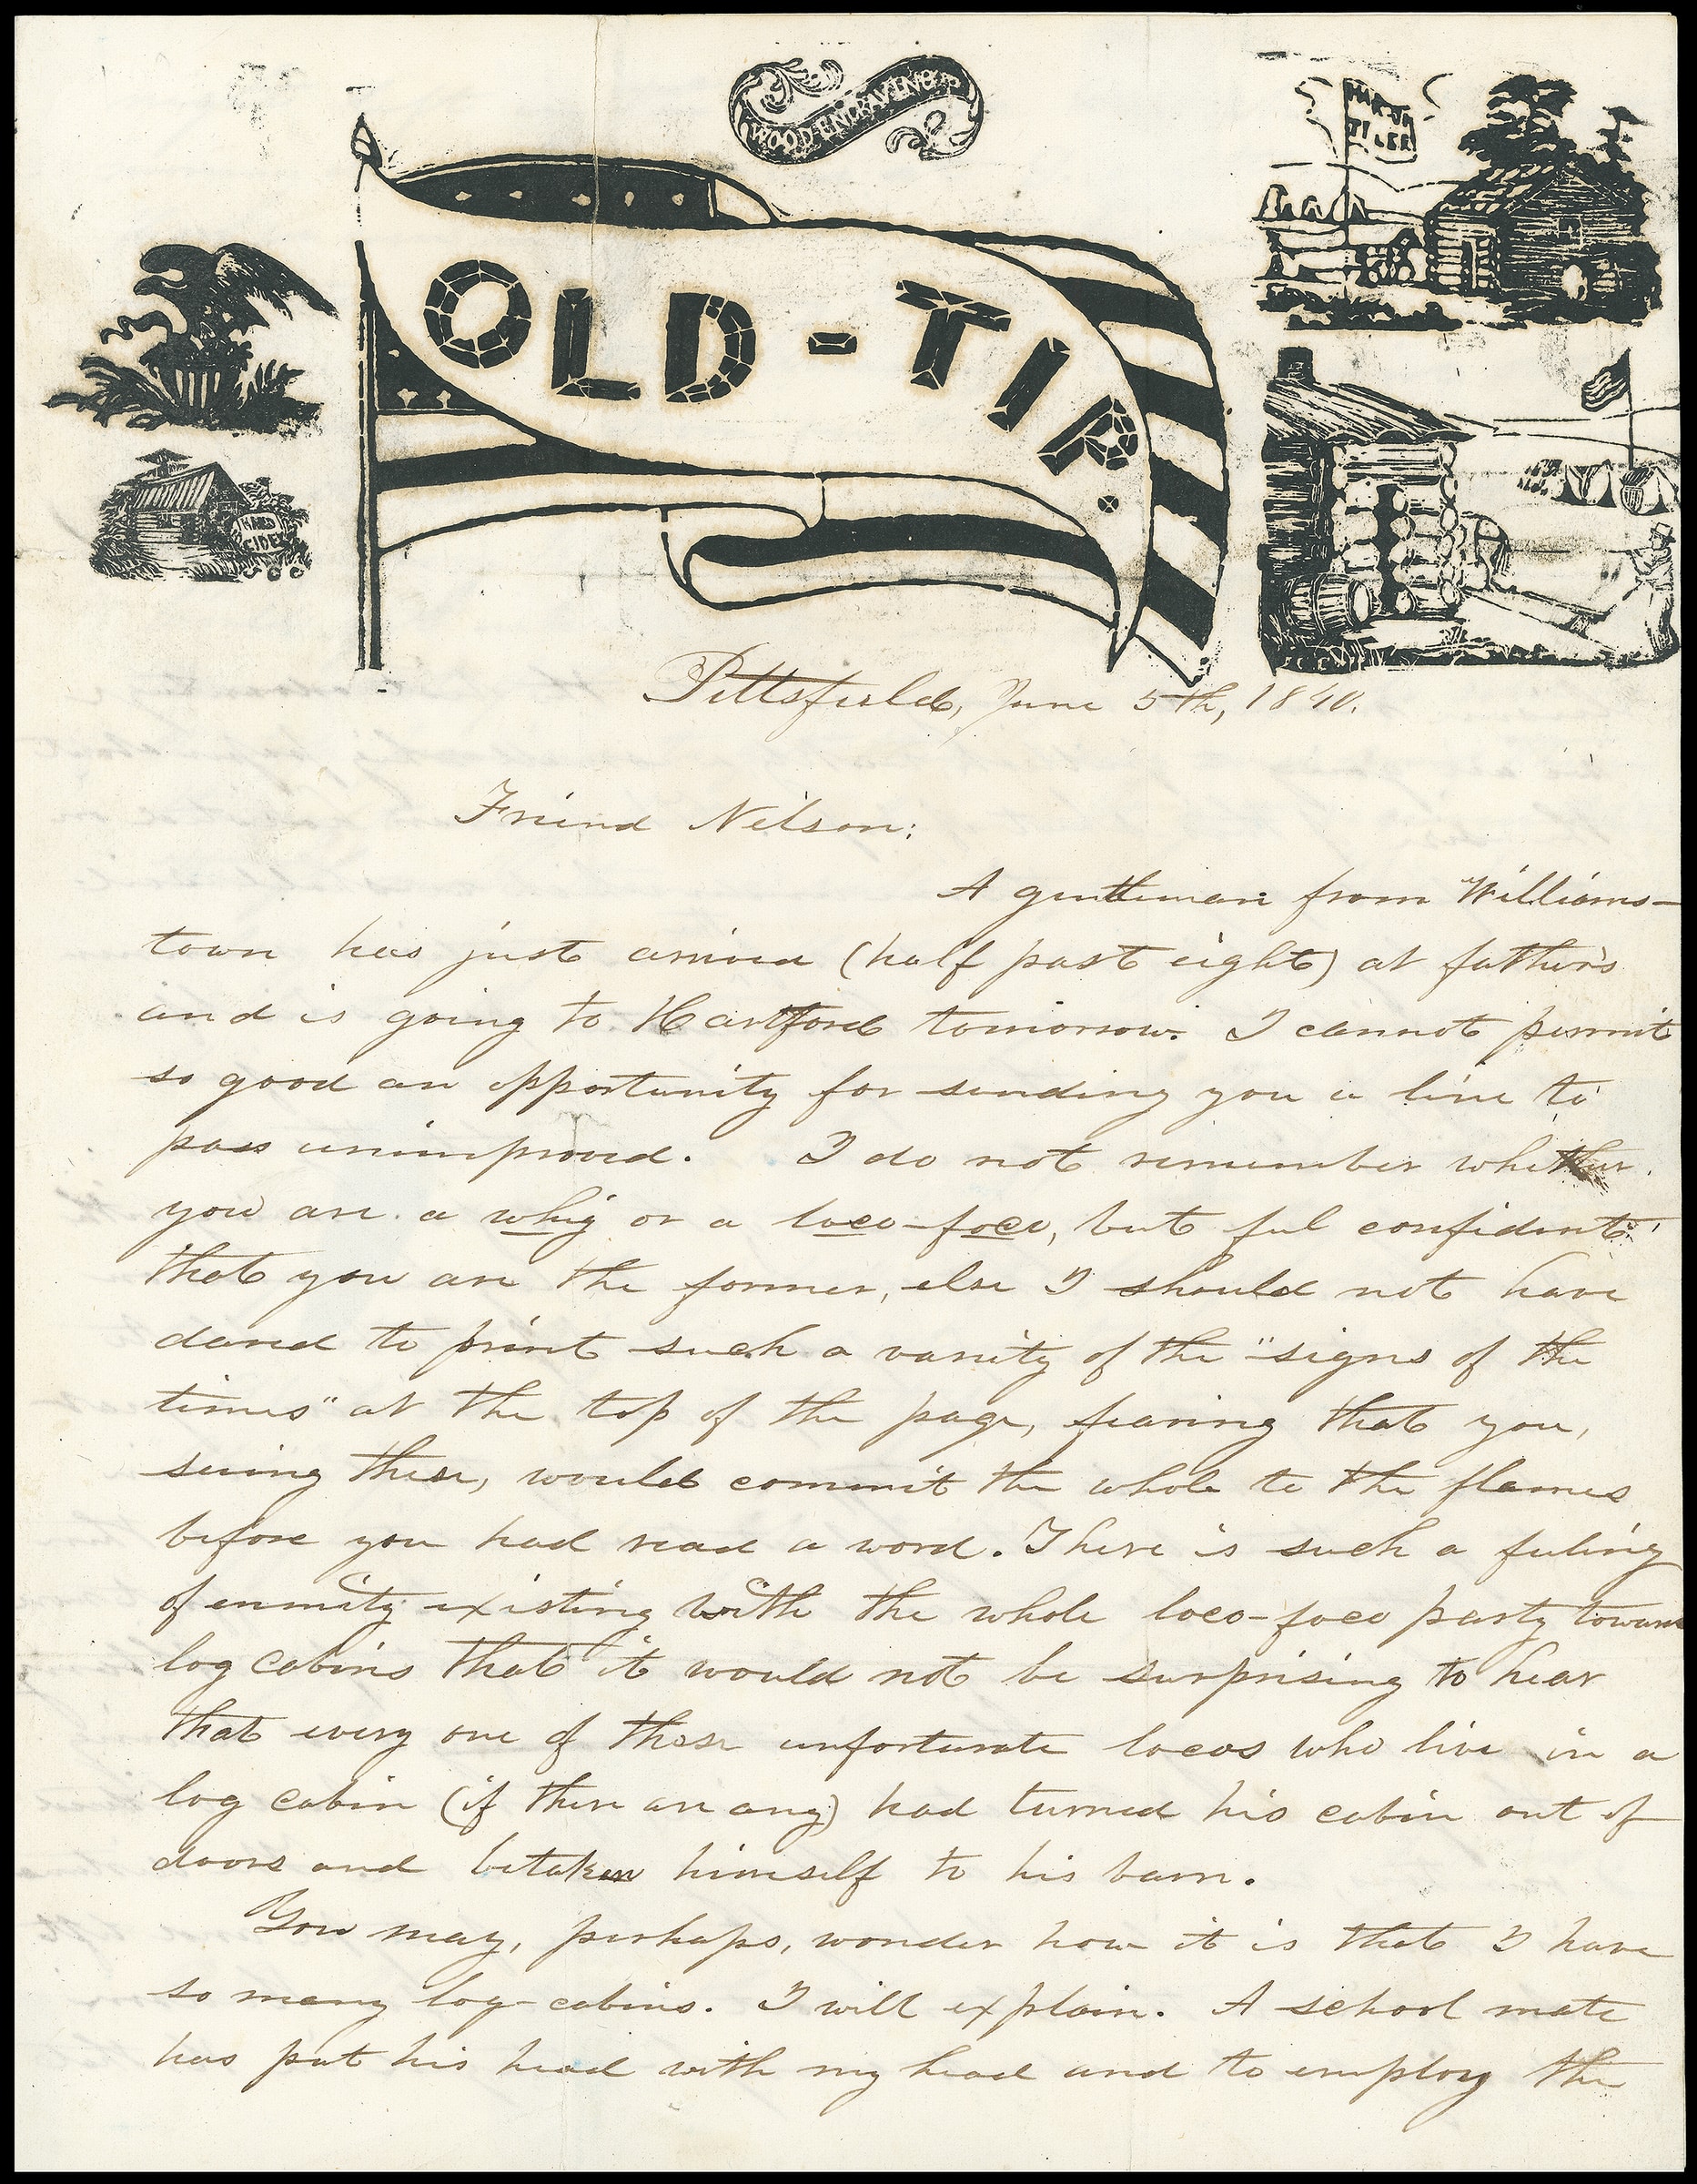 WOOD-ENGRAVINGS
OLD-TIP.
HARD
CIDER
Pittsfield, June 5th, 1840.
Friend Nelson:
A gentleman from Williams-
town has just arrived (half past eight) at father's
and is going to Hartford tomorrow. I cannot permit
so good an opportunity for sending you a line to
pass unimproved. I do not remember whether
you are a whig or a loco-foco, but feel confident
that you are the former, else I should not have
dared to print such a variety of the "signs of the
times" at the top of the page, fearing that you,
seeing these, would commit the whole to the flames
before you had read a word. There is such a feeling
of enmity existing with the whole loco-foco party toward
log cabins that it would not be surprising to hear
that every one of those unfortunate locos who live in a
log cabin (if there are any) had turned his cabin out of
doors and betaken himself to his barn.
You may, perhaps, wonder how it is that I have
so many log-cabins. I will explain. A school mate
has put his head with my head and to employ the